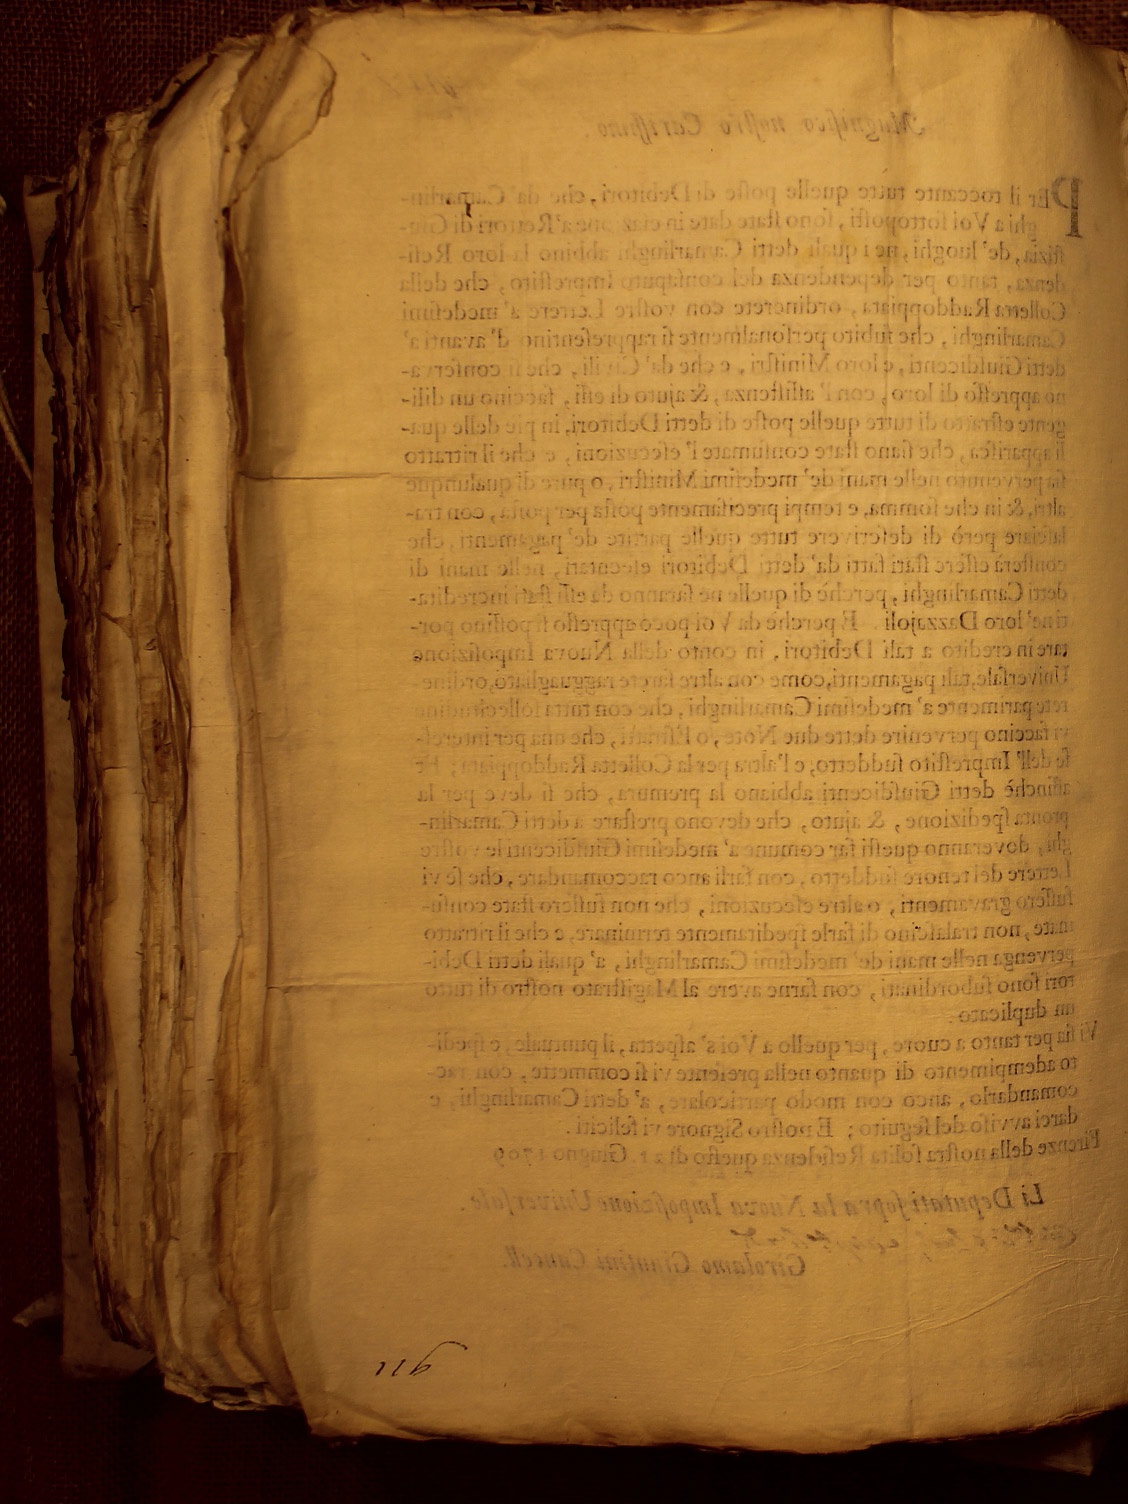 Magnifico noſtro Cariſſimo.
PEr il toccante tutte quelle poſte di Debitori, che da' Camarlin-
ghi a Voi ſottopoſti, ſono ſtate date in a' Rettori di Giu-
ſtizia, de' luoghi, ne i quali detti Camarlinghi abbino la loro Reſi-
denza, tanto per dependenza del conſaputo Impreſtito, che della
Colletta Raddoppiata, ordinerete con voſtre Lettere a' medeſimi
Camarlinghi, che ſubito perſonalmente ſi rappreſentino d'avanti a'
detti Giuſdicenti, e loro Miniſtri, e che da' Civili, che ſi conſerva-
no appreſſo di loro, con l'aſſiſtenza, & ajuto di eſſi, faccino un dili-
gente eſtratto di tutte quelle poſte di detti Debitori, in piè delle qua-
li appariſca, che ſiano ſtate conſumate l'eſecuzioni, e che il ritratto
ſia pervenuto nelle mani de' medeſimi Miniſtri, o pure di qualunque
altri, & in che ſomma, e tempi preciſamente poſta per poſta, con tra-
laſciare però di deſcrivere tutte quelle partite de' pagamenti, che
conſterà eſſere ſtati fatti da' detti Debitori eſecutati, nelle mani di
detti Camarlinghi, perchè di quelle ne ſaranno da eſſi ſtati incredita-
ti ne' loro Dazzajoli. E perchè da Voi poco appreſſo ſi poſſino por-
tare in credito a tali Debitori, in conto della Nuova Impoſizione
Univerſale, tali pagamenti, come con altre ſarete ragguagliato, ordine-
rete parimente a' medeſimi Camarlinghi, che con tutta ſollecitudine
vi faccino pervenire dette due Note, o Eſtratti, che una per intereſ-
ſe dell' Impreſtito ſuddetto, e l'altra per la Colletta Raddoppiata; Et
affinchè detti Giuſdicenti abbiano la premura, che ſi deve per la
pronta ſpedizione, & ajuto, che devono preſtare a detti Camarlin-
ghi, doveranno queſti far comune a' medeſimi Giuſdicenti le voſtre
Lettere del tenore ſuddetto, con farli anco raccomandare, che ſe vi
fuſſero gravamenti, o altre eſecuzioni, che non fuſſero ſtate conſu-
mate, non tralaſcino di farle ſpeditamente terminare, e che il ritratto
pervenga nelle mani de' medeſimi Camarlinghi, a' quali detti Debi-
tori ſono ſubordinati, con farne avere al Magiſtrato noſtro di tutto
un duplicato.
Vi ſia per tanto a cuore, per quello a Voi s'aſpetta, il puntuale, e ſpedi-
to adempimento di quanto nella preſente vi ſi commette, con rac-
comandarlo, anco con modo particolare, a' detti Camarlinghi, e
darci avviſo del ſeguito; E noſtro Signore vi feliciti.
Firenze della noſtra ſolita Reſidenza queſto dì 21. Giugno 1709
Li Deputati ſopra la Nuova Impoſizione Univerſale.
Girolamo Giuntini Cancell.